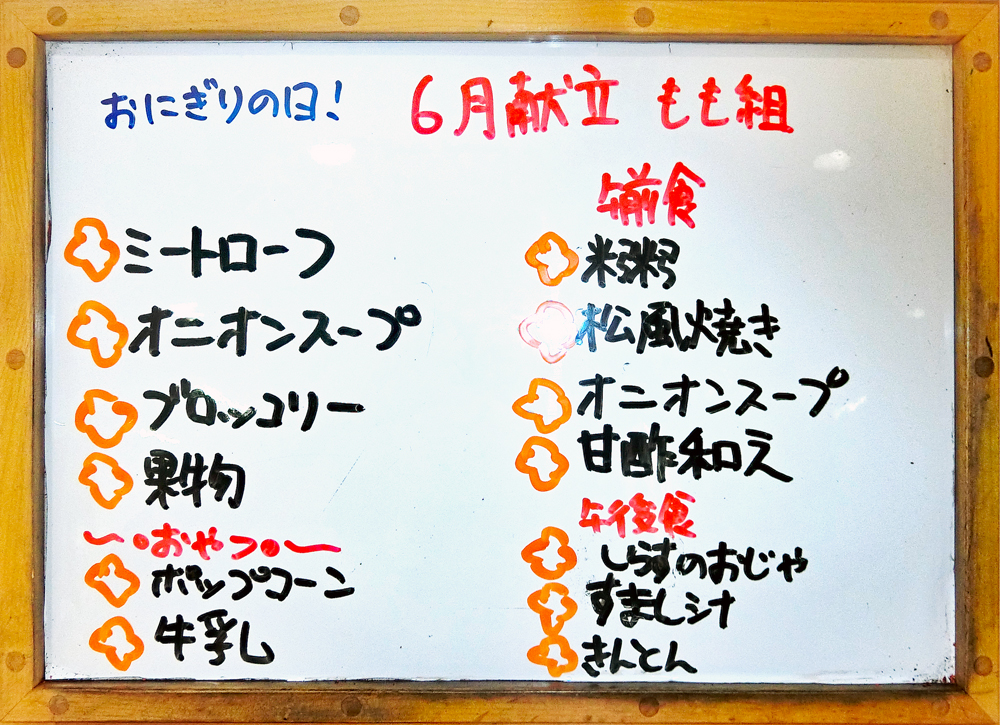 おにぎりの日!
6月献立 もも組
ミートローフ
オニオンスープ
ブロッコリー
果物
〜•おやつ•〜
ポップコーン
牛乳
午前食
松風焼き
オニオンスープ
甘酢和え
午後食
しらすのおじや
すましシナ
きんとん